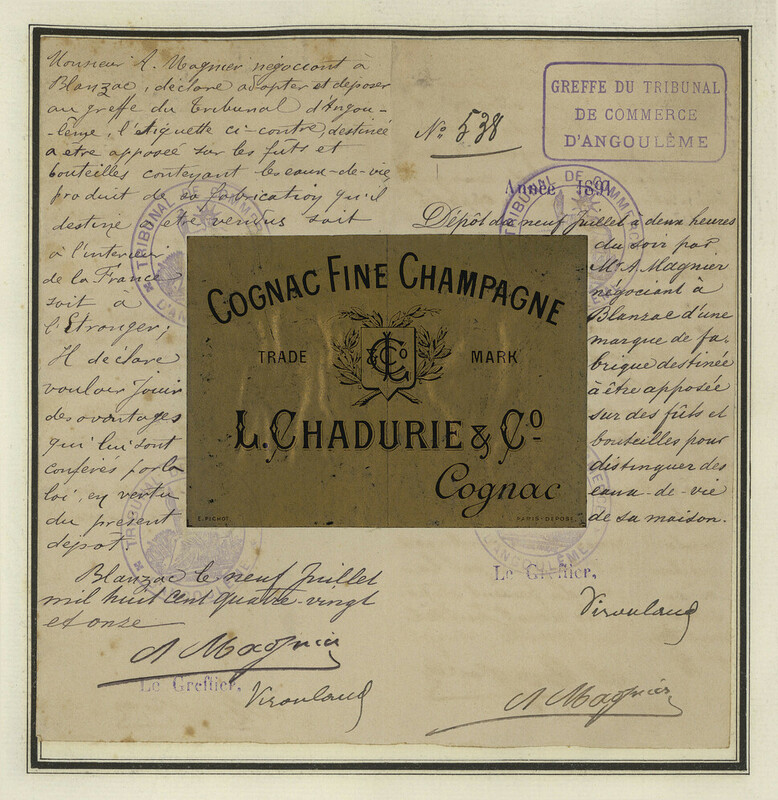 Monsieur A. Magnier négociant à
Blanzac, déclare adopter et déposer
au greffe du Tribunal d'Angou-
lême, l'étiquette ci-contre destinée
a etre apposée sur les futs et
bouteilles contenant les eaux-de-vie
produit de sa fabrication qu'il
destine a être vendus soit
à l'interieur
de la France
soit a
l'Etranger;
Il déclare
vouloir Jouir
des avantages
qui lui sont
conférés par la
loi, en vertu
du présent
dépot.
Blanzac le neuf Juillet
mil huit cent quatre-vingt
et onze
A Magnier
Le Greffier,
Viroulaud
GREFFE DU TRIBUNAL
DE COMMERCE
D'ANGOULÊME
No 538
Année 1891
Dépôt du neuf Juillet à deux heures
du soir par
Mr A. Magnier
négociant à
Blanzac d'une
marque de fa-
brique destinée
à être apposée
sur des fûts et
bouteilles pour
distinguer des
eaux-de-vie
de sa maison.
Le Greffier,
Viroulaud
A Magnier
COGNAC FINE CHAMPAGNE
TRADE &Co MARK
L. CHADURIE & Co
Cognac
E. PICHOT PARIS-DEPOSE
TRIBUNAL DE COMMERCE
TRIBUNAL DE COMMERCE
TRIBUNAL
D'ANGOULÊME